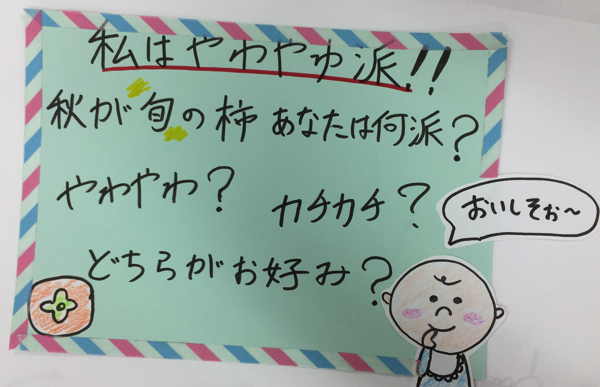 私はやわやわ派!!
秋が旬の柿 あなたは何派?
やわやわ? カチカチ?
おいしそぉ〜
どちらがお好み?